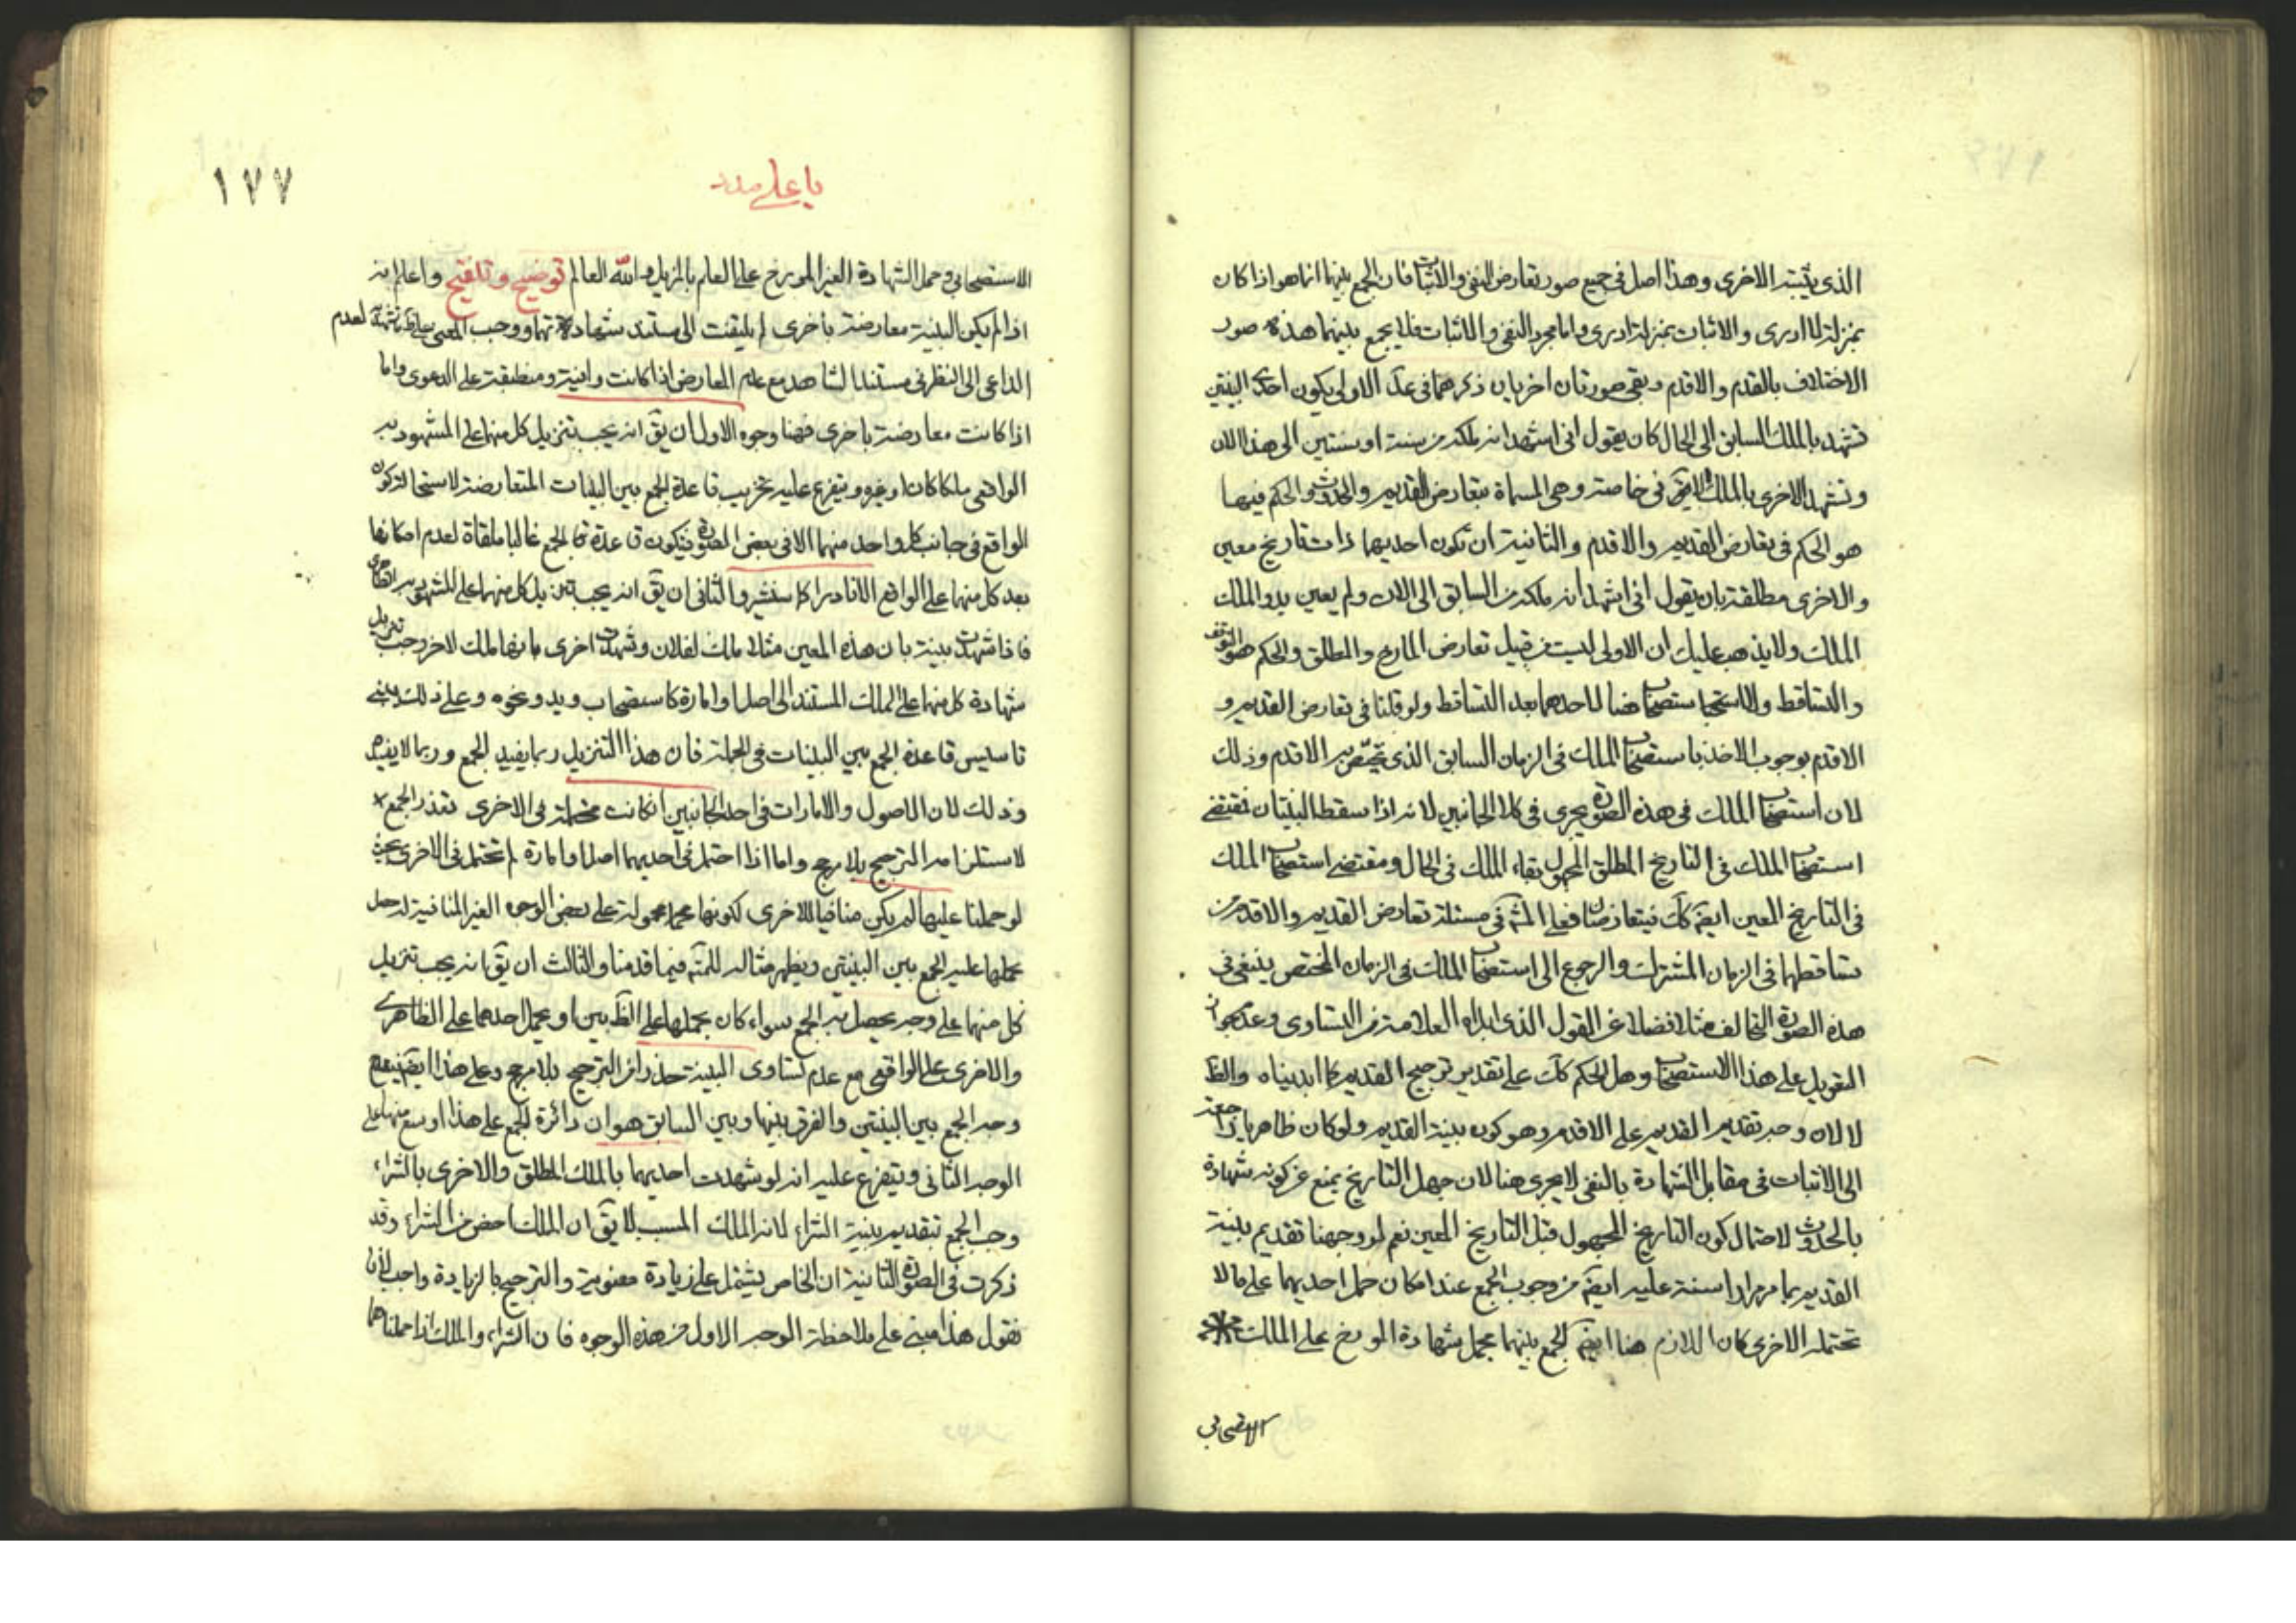 الذى يثبته الاخرى وهذا اصل فى جميع صور تعارض النفى والاثبات فان الجمع بينهما انما هو اذا كان
بمنزلة لا ادرى والاثبات بمنزلة ادرى واما مجرد النفى والاثبات فلا يجمع بينهما هذه صور
الاختلاف بالقدم والاقدم وبقى صورتان اخريان ذكرهما فى عد الاولى يكون احدى البينتين
تشهد بالملك السابق الى الحال كان يقول انى اشهد انه ملكه من سنة او سنتين الى هذا الان
وتشهد الاخرى بالملك اللاحق خاصته وهى المسماة بتعارض القديم والحدوث والحكم فيها
هو الحكم فى تعارض القديم والاقدم والثانية ان تكون احديهما ذات تاريخ معين
والاخرى مطلقة بان يقول انى اشهد انه ملكه من السابق الى الان ولم يعين بدو الملك
الملك ولا يذهب عليك ان الاولى ليست من قبيل تعارض المارخ والمطلق والحكم هو التوقف
والتساقط والاستصحاب هنا لاحدهما بعد التساقط ولو قلنا فى تعارض القديم و
الاقدم بوجوب الاخذ باستصحاب الملك فى الزمان السابق الذى تختص به الاقدم وذلك
لان استصحاب الملك فى هذه الصورة يجرى فى كلا الجانبين لانه اذا سقط البينتان فمقتضى
استصحاب الملك فى التاريخ المطلق المجهول بقاء الملك فى الحال ومقتضى استصحاب الملك
فى التاريخ المعين ايضا كك فيتعارضان فعلى المش فى مسئلة تعارض القديم والاقدم من
تساقطهما فى الزمان المشترك والرجوع الى استصحاب الملك فى الزمان المختص ينبغى فى
هذه الصورة التخالف مثلا فضلا عن القول الذى ابداه العلامة من التساوى وعدم جواز
التعويل على هذا الاستصحاب وهل الحكم كك على تقدير ترجيح القديم كما ابديناه والظ
لا لان وجه تقديم القديم على الاقدم وهو كون بينة القديم ولو كان ظاهريا راجعة
الى الاثبات فى مقابل الشهادة بالنفى لا يجرى هنا لان جهل التاريخ يمنع عن كونه شهادة
بالحدوث لاحتمال كون التاريخ المجهول قبل التاريخ المعين نعم لو وجهنا تقديم بينة
القديم بما مر مرارا سنة عليه ايضا من وجوب الجمع عند امكان حمل احديهما على ما لا
تحتمله الاخرى كان اللازم هنا ايضا الجمع بينهما بحمل شهادة المورخ على الملك
الاستصحابى
١٧٧
يا على مدد
الاستصحابى وحمل الشهادة الغير المورخ على العلم بالمزيل والله العالم توضيح وتنقيح واعلم انه
اذا لم يكن البينة معارضة باخرى لم يلتفت الى مستند شهادتهما ووجب المضى على شهادته لعدم
الداعى الى النظر فى مستند الشاهد مع عدم المعارض اذا كانت وافية ومنطبقة على الدعوى واما
اذا كانت معارضة باخرى فهنا وجوه الاول ان يق انه يجب تنزيل كل منهما على المشهود به
الواقعى ملكا كان او غيره ويتفرع عليه تخريب قاعدة الجمع بين البينات المتعارضة لاستحالة كون
الواقع فى جانب كل واحد منهما الا فى بعض الصور فيكون قاعدة الجمع غالبا ملقاة لعدم امكانها
بعد كل منهما على الواقع الا نادرا كما سنشير والثانى ان يق انه يجب تنزيل كل منهما على المشهود به الظاهرى
فاذا شهدت بينة بان هذه المعين مثلا ملك لفلان وشهدت اخرى بانها ملك لاخر وجب تنزيل
شهادة كل منهما على الملك المستند الى اصل او امارة كاستصحاب ويد ونحوه وعلى ذلك يبنى
تاسيس قاعدة الجمع بين البينات فى الجملة فان هذا التنزيل ربما يفيد الجمع وربما لا يفيد
وذلك لان الاصول والامارات فى احد الجانبين ان كانت محتملة فى الاخرى تعذر الجمع
لاستلزامه الترجيح بلا مرجح واما اذا احتمل فى احديهما اصل او امارة لم تحتمل فى الاخرى بحيث
لو حملنا عليها لم يكن منافيا للاخرى لكونها محمولة على بعض الوجوه الغير المنافية له حصل
بحملها عليه الجمع بين البينتين ويظهر مثاله للمتامل فيما قدمنا والثالث ان يق انه يجب تنزيل
كل منهما على وجه يحصل به الجمع سواء كان بحملهما على الظاهريين او بحمل احدهما على الظاهرى
والاخرى على الواقعى مع عدم تساوى البينة حذرا من الترجيح بلا مرجح وعلى هذا ايضا يتفرع
وجه الجمع بين البينتين والفرق بينها وبين السابق هو ان دائرة الجمع على هذا اوسع منها على
الوجه الثانى ويتفرع عليه انه لو شهدت احديهما بالملك المطلق والاخرى بالشراء
وجب الجمع بتقديم بينة الشراء لانه الملك المسبب لا يق ان الملك اخص من الشراء وقد
ذكرت فى الصورة الثانية ان الخاص يشتمل على زيادة معنوية والترجيح بالزيادة واجب لانا
نقول هذا مبنى على ملاحظة الوجه الاول من هذه الوجوه فان الشراء والملك اذا حملناهما